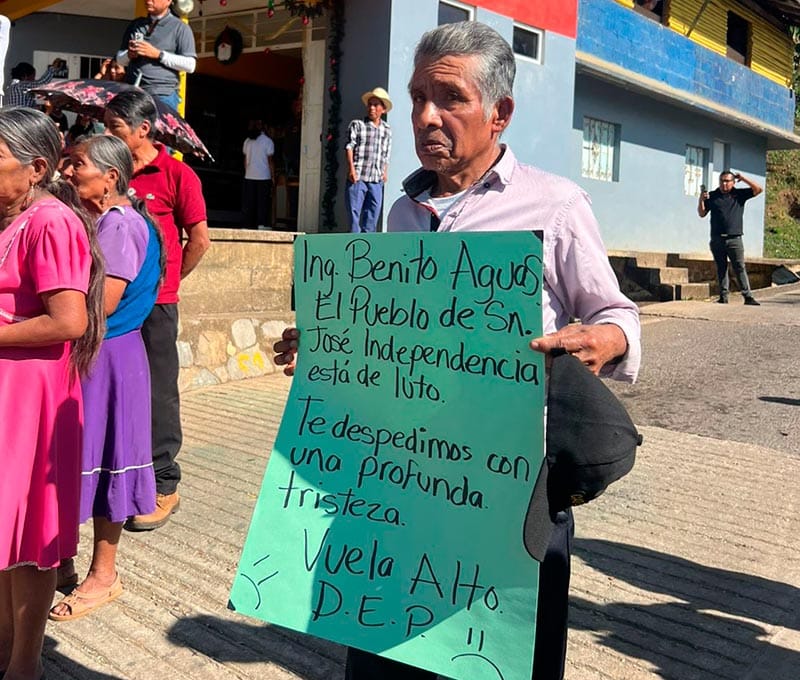 Ing. Benito Aguas
El Pueblo de Sn.
José Independencia
está de luto.
Te despedimos con
una profunda.
tristeza.
Vuela Alto.
D.E.P.